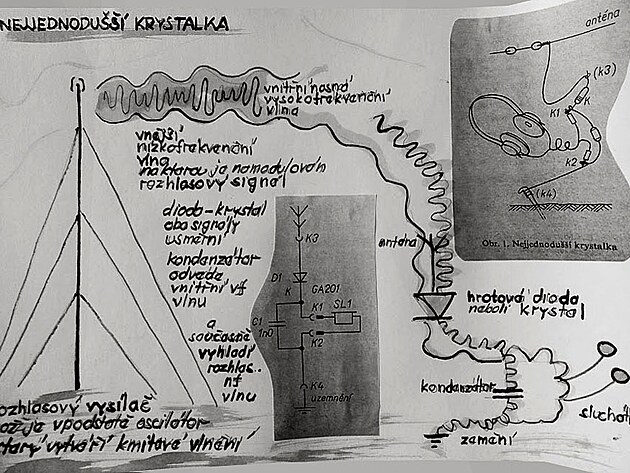 NEJJEDNODUŠŠÍ KRYSTALKA
vnitřní nosná
vysokofrekvenční
vlna
vnější
nízkofrekvenční
vlna
na kterou je namodulován
rozhlasový signál
dioda-krystal
oba signály
usměrní
kondenzátor
odvede
vnitřní vf
vlnu
a
současně
vyhladí
rozhlas..
nf
vlnu
rozhlasový vysílač
což je vpodstatě oscilátor
který vytváří kmitavé vlnění
K3
D1
K
GA201
K1
SL1
C1
1n0
K2
K4
uzemnění
anténa
(k3)
K1
K
k2
(k4)
Obr. 1. Nejjednodušší krystalka
anténa
hrotová dioda
neboli krystal
kondenzátor
zemění